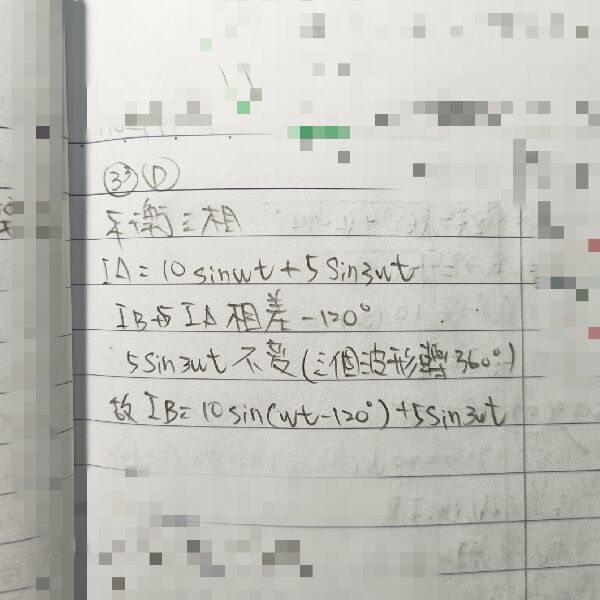 33 D
平衡三相
IA = 10 sinwt + 5 Sin3wt
IB与 IA 相差 -120°
5Sin 3wt 不變(三個波形轉360°)
故 IB = 10 sin(wt-120°) + 5Sin3wt